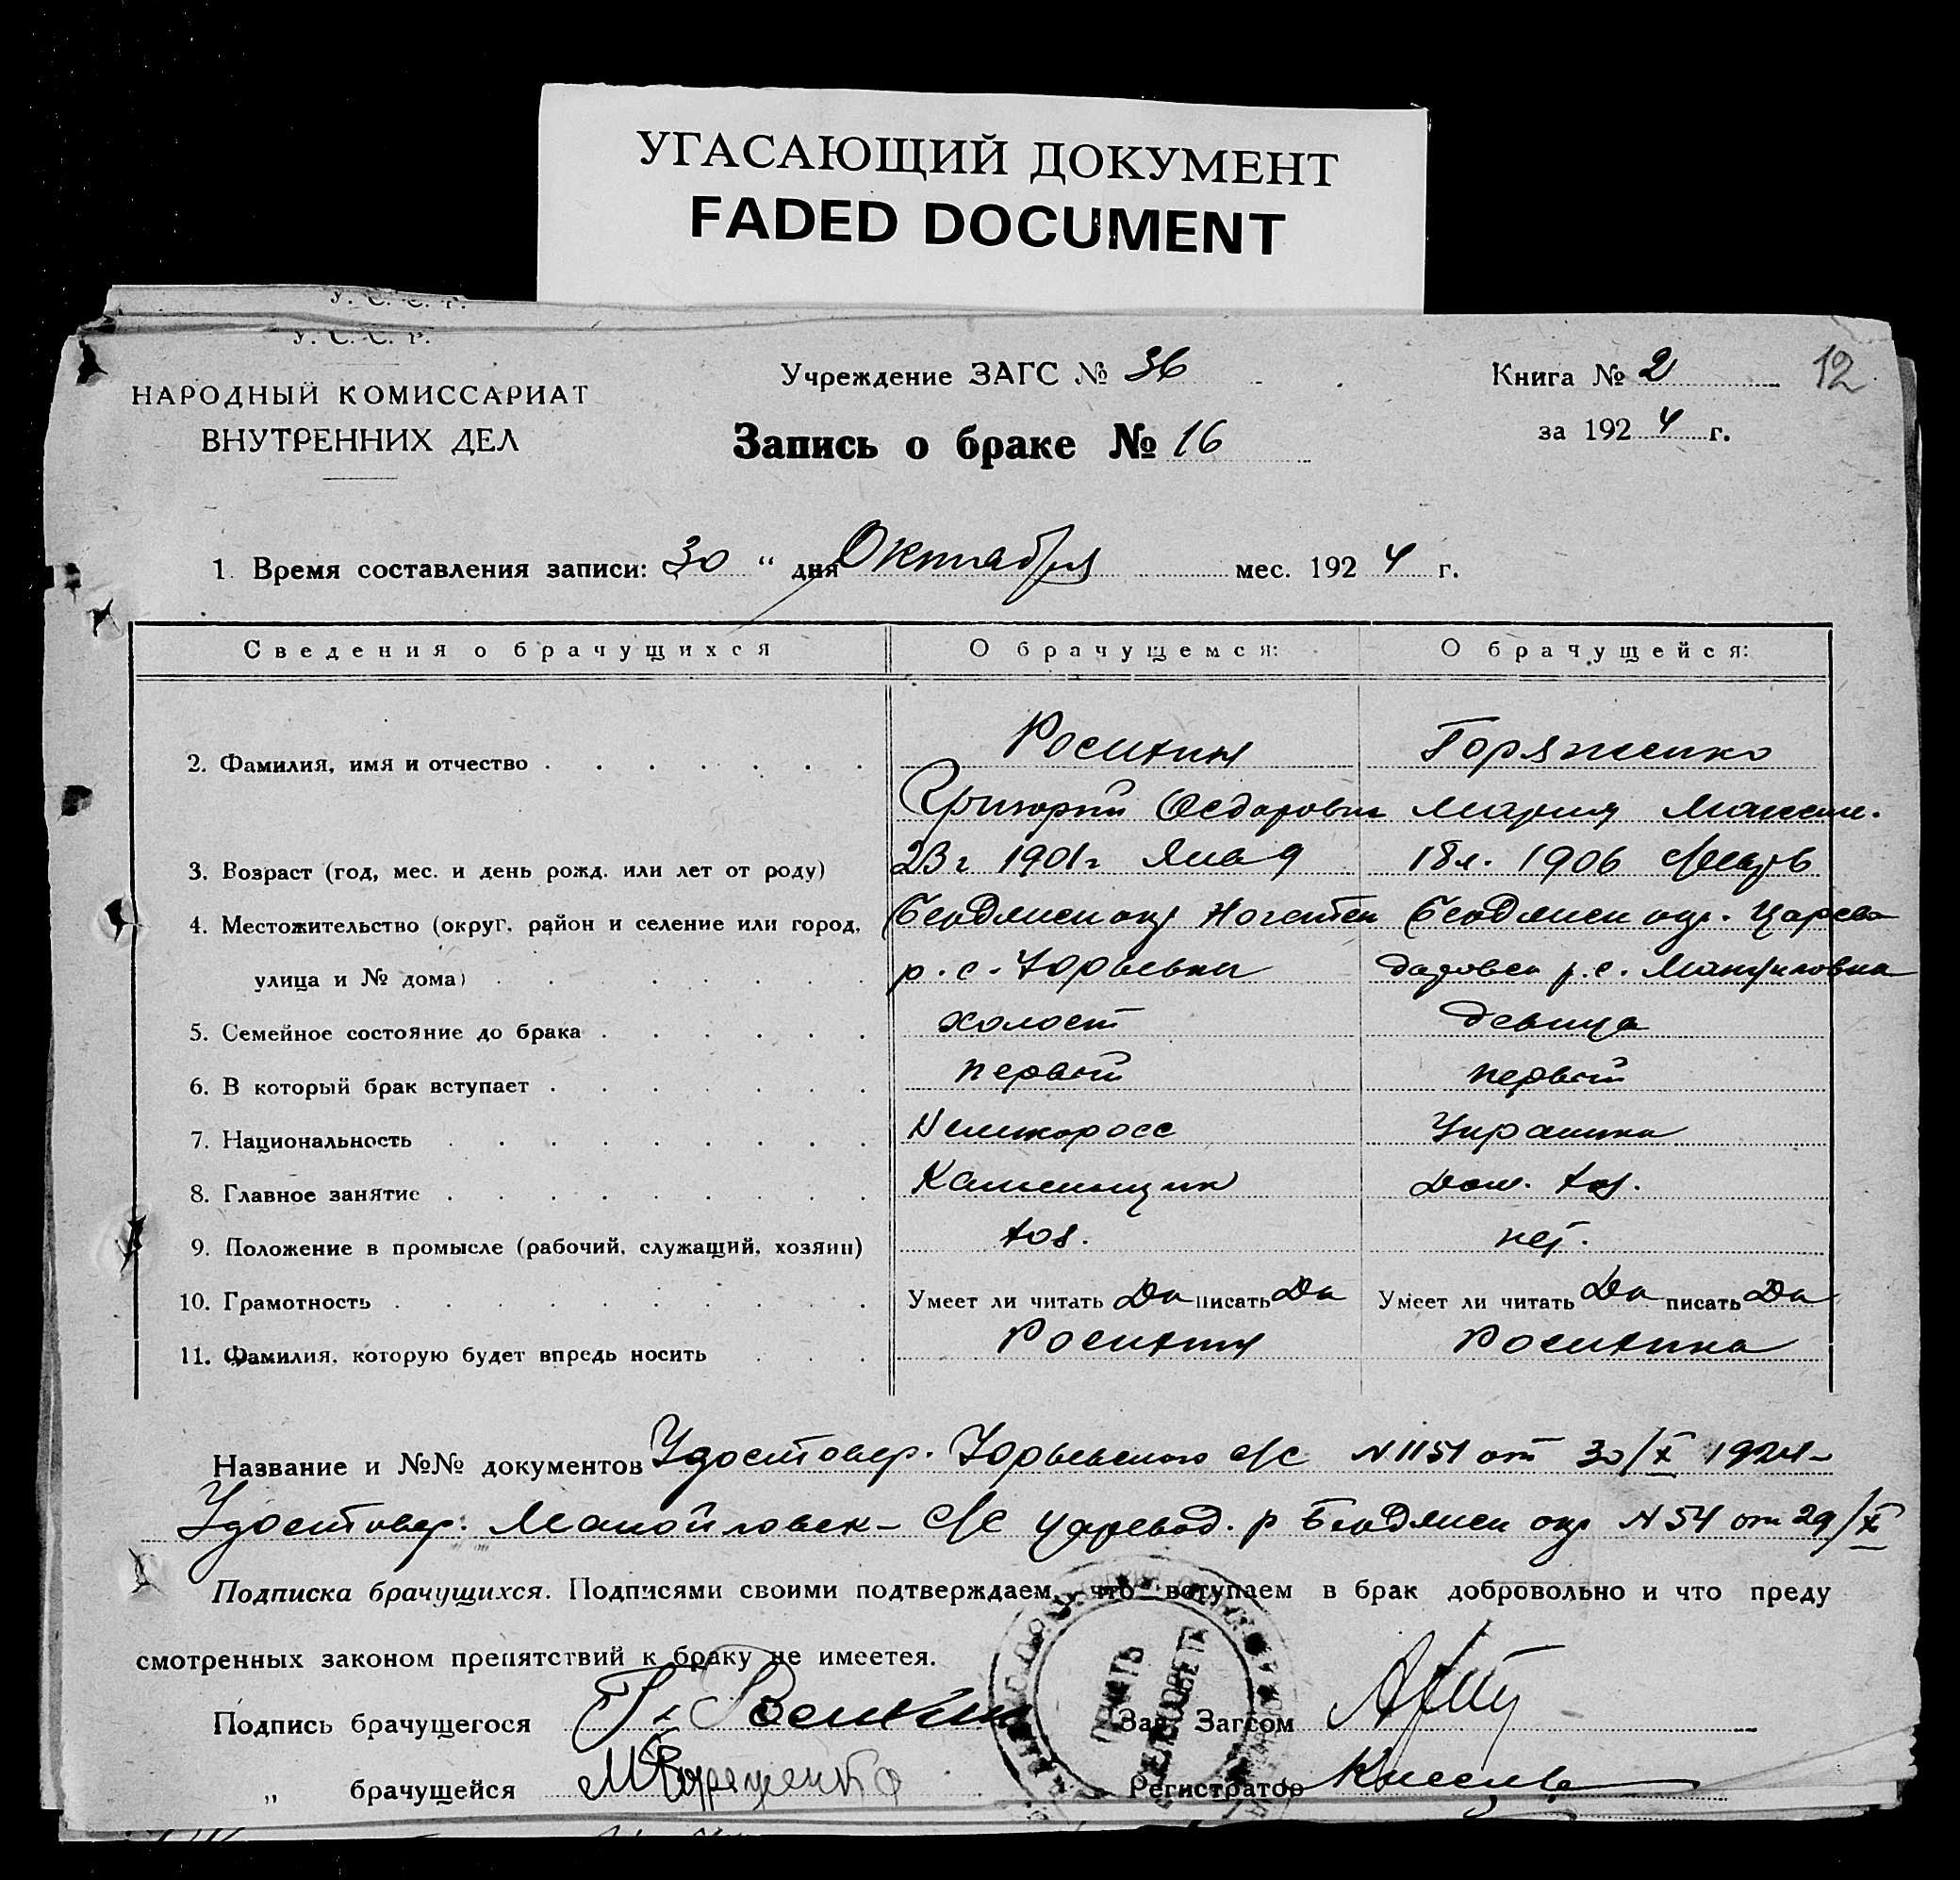 УГАСАЮЩИЙ ДОКУМЕНТ
FADED DOCUMENT
У. С. С. Р.
У. С. С. Р.
НАРОДНЫЙ КОМИССАРИАТ
ВНУТРЕННИХ ДЕЛ
Учреждение ЗАГС № 36
Запись о браке № 16
Книга № 2
за 1924 г.
12
1. Время составления записи: 30 " дня Октября мес. 1924 г.
Сведения о брачущихся О брачущемся: О брачущейся:
2. Фамилия, имя и отчество Росихин
Григорий Федорович Мария Максим.
3. Возраст (год, мес. и день рожд. или лет от роду) 23 г 1901 г Янв 9 18 л. 1906
4. Местожительство (округ, район и селение или город, Бердянск окр Ногайск Бердянск окр. Царево
улица и № дома) р. с. Юрьевка даровск р. с. Мануиловка
5. Семейное состояние до брака холост девица
6. В который брак вступает первый первый
7. Национальность Великоросс Украинка
8. Главное занятие Каменщик Дом. хоз.
9. Положение в промысле (рабочий, служащий, хозяин) хоз. нет.
10. Грамотность Умеет ли читать Да писать Да Умеет ли читать Да писать Да
11. Фамилия, которую будет впредь носить Росихин Росихина
Название и №№ документов Удостовер. Юрьевского с/с N 1151 от 30/X 1924
Удостовер. Манойловск - с/с Царевод. р Бердянск окр N 54 от 29/X
Подписка брачущихся. Подписями своими подтверждаем, что вступаем в брак добровольно и что преду
смотренных законом препятствий к браку не имеется.
Подпись брачущегося Г. Росихин Зав. Загсом
„ брачущейся Регистратор
ПЕЧАТЬ